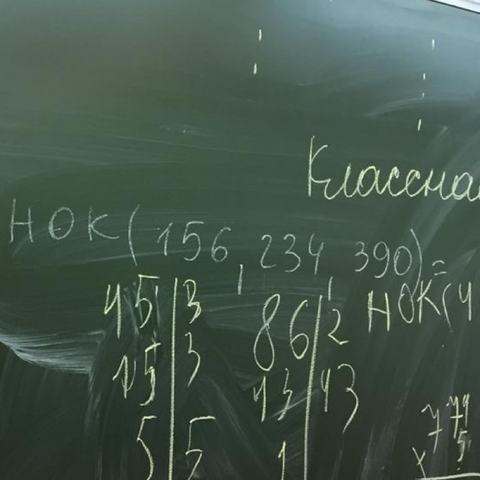 Классна
НОК(156 234 390)=
45 3 86 2 НОК(4
15 3 43 43
5 5 1